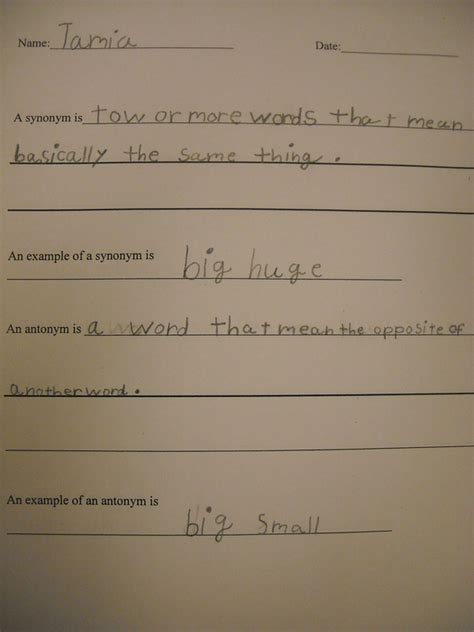 Name: Tamia Date:
A synonym is tow or more words that mean
basically the same thing.
An example of a synonym is big huge
An antonym is a word that mean the opposite of
another word.
An example of an antonym is
big small